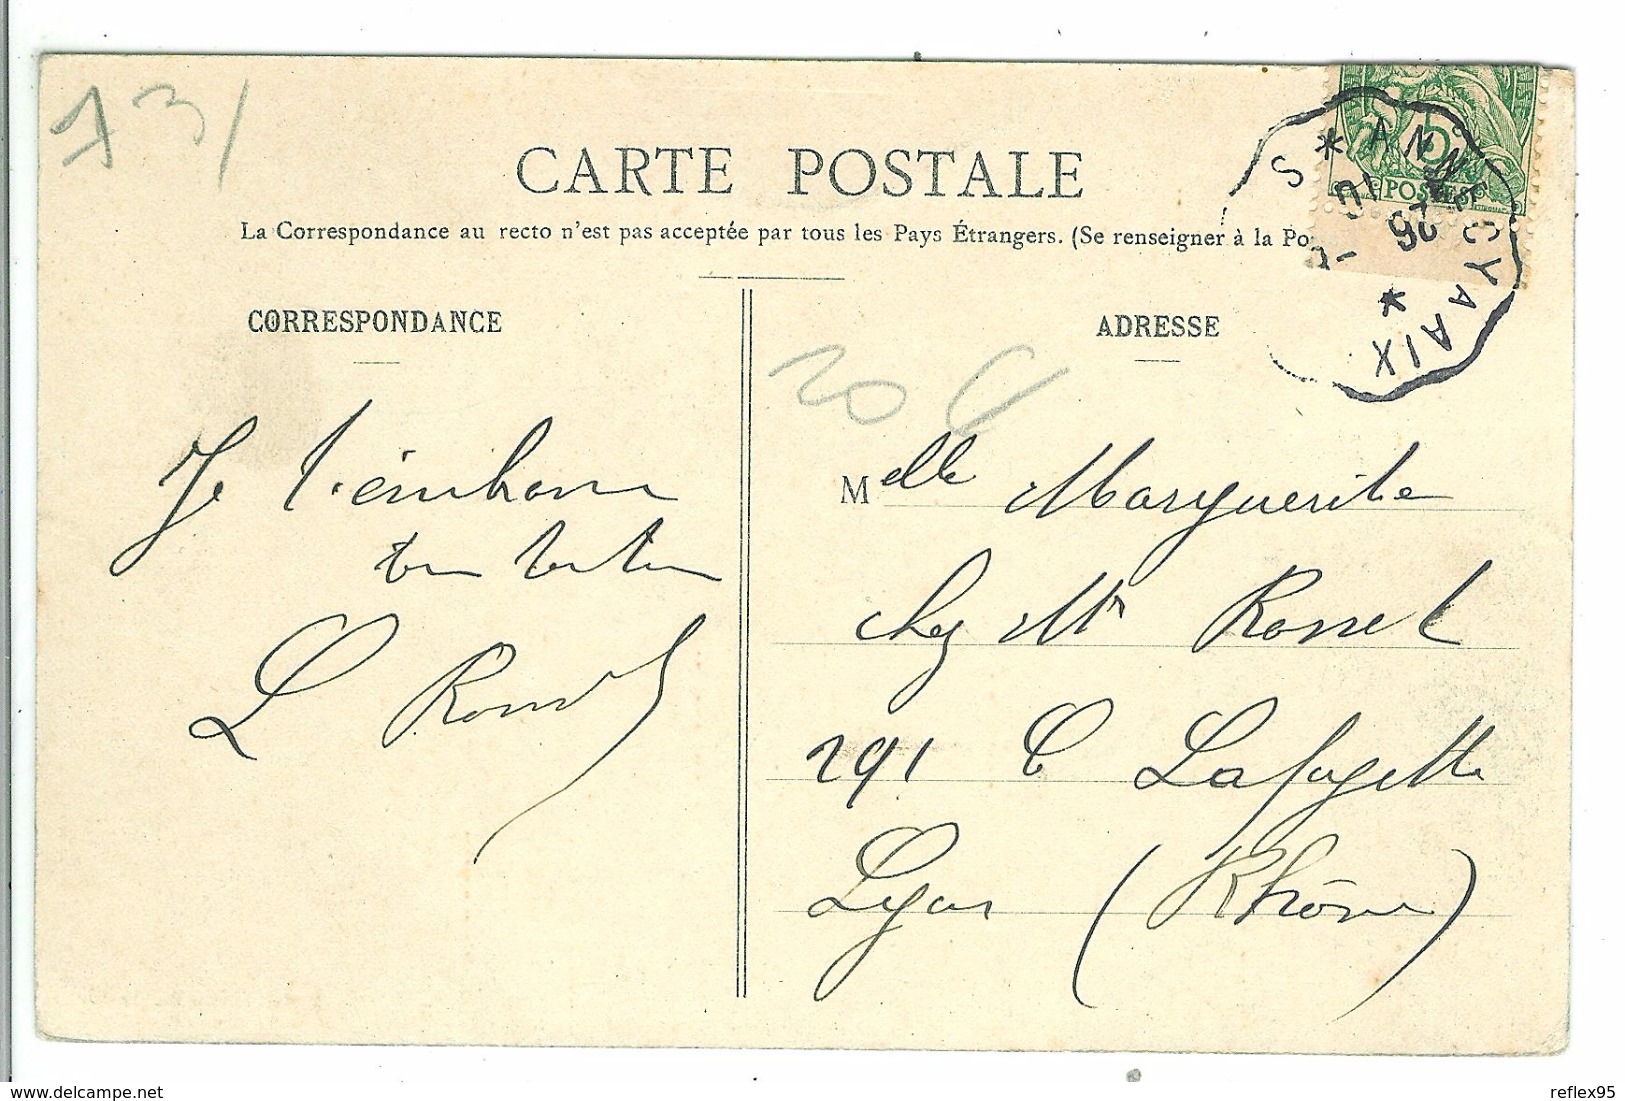 73
CARTE POSTALE
La Correspondance au recto n'est pas acceptée par tous les Pays Étrangers. (Se renseigner à la Po
S * ANNECY A AIX *
POSTES
CORRESPONDANCE
ADRESSE
20
Je t'embrasse
L
Melle Marguerite
chez Mr
291 C Lafayette
Lyon (Rhône)
reflex95